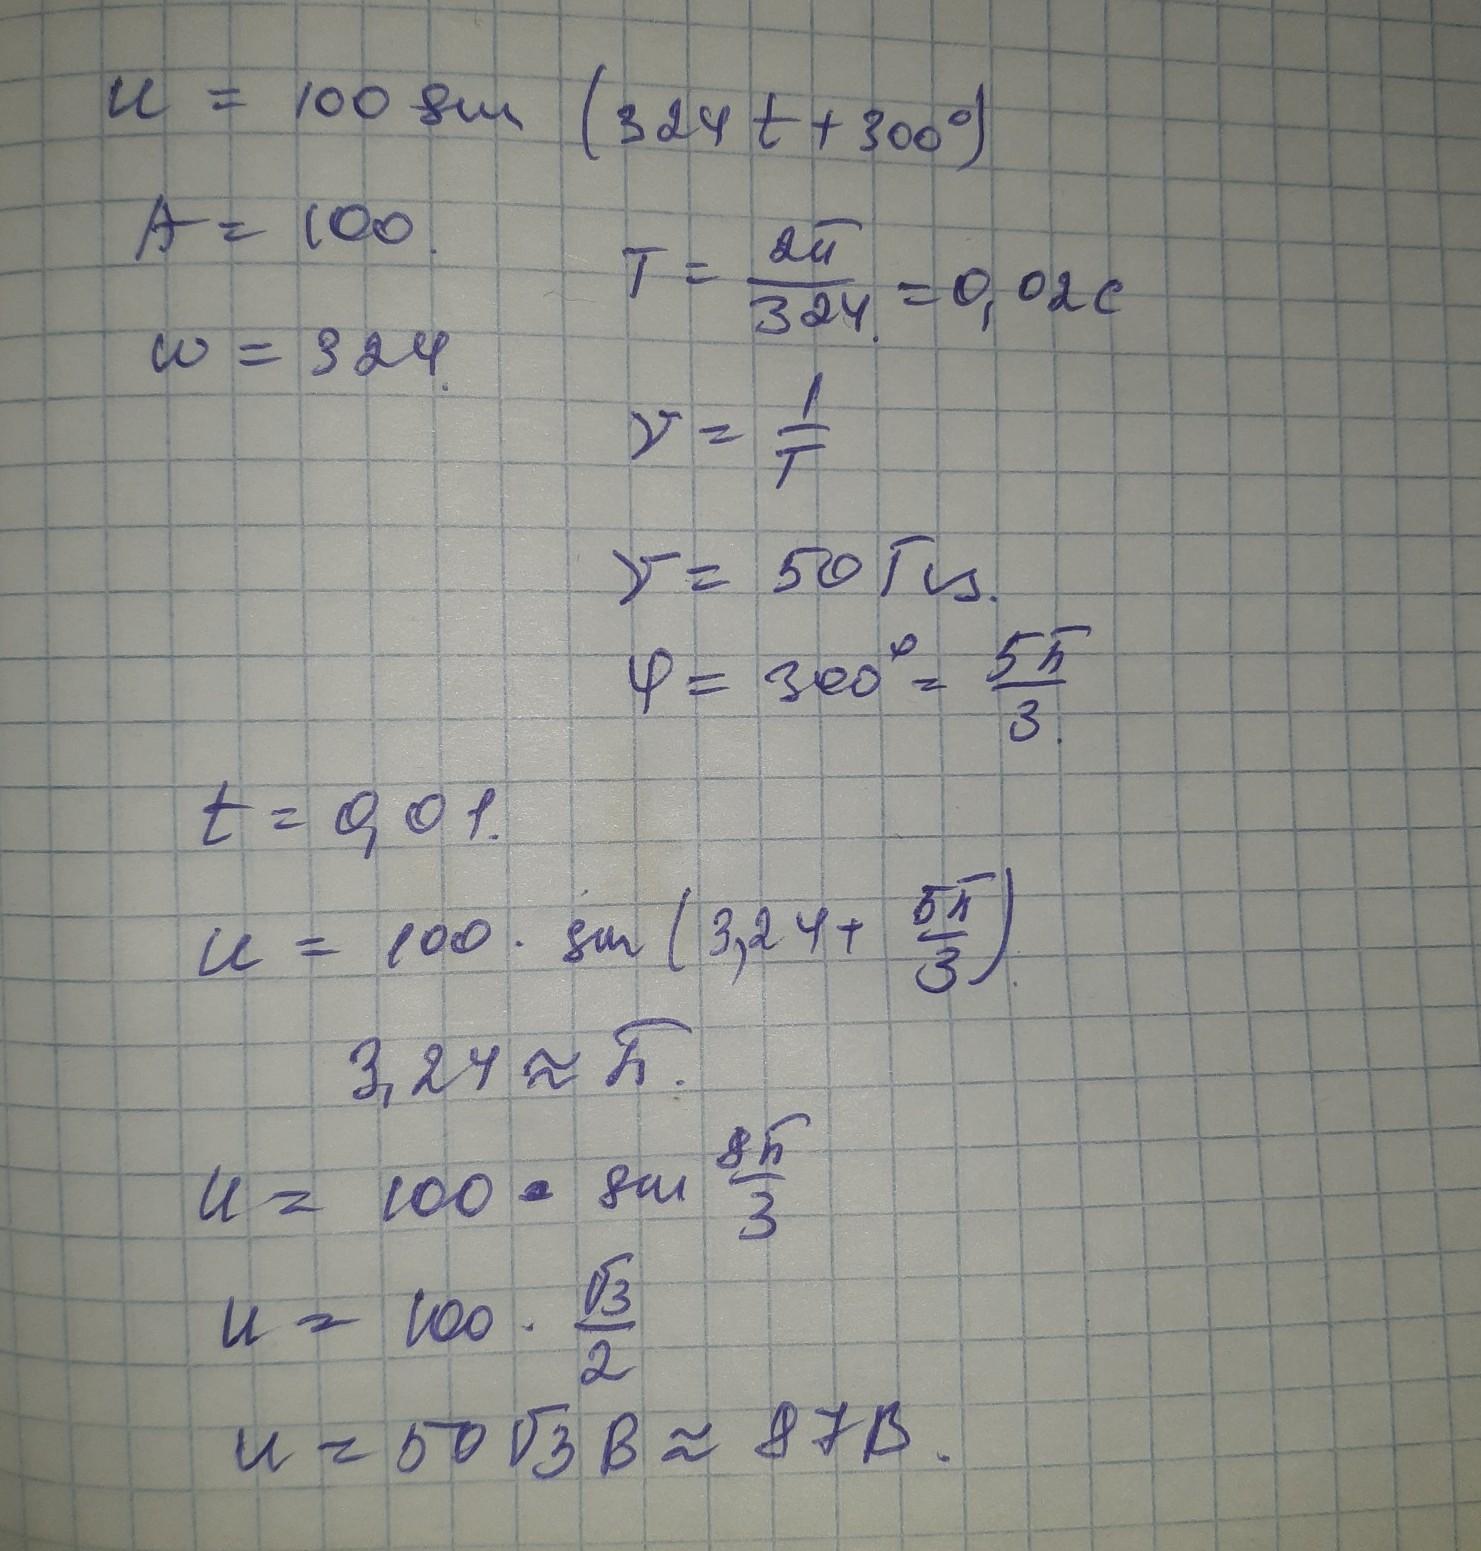 u = 100 sin (324 t + 300°)
A = 100.
T = 2π/324. = 0,02 с
ω = 324.
ν = 1/T
ν = 50 Гц.
φ = 300° = 5π/3.
t = 0,01.
u = 100 · sin (3,24 + 5π/3).
3,24 ≈ π.
u = 100 · sin 8π/3
u = 100 · √3/2
u = 50 √3 В ≈ 87 В.